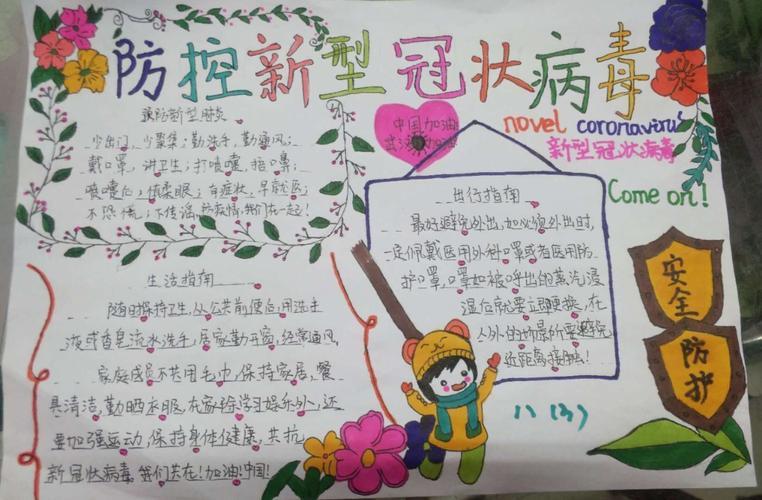 防控新型冠状病毒
novel coronavirus
新型冠状病毒
Come on!
中国加油
武汉加油
预防新型肺炎
少出门,少聚集;勤洗手,勤通风;
戴口罩,讲卫生;打喷嚏,捂口鼻;
喷嚏后,慎揉眼;有症状,早就医;
不恐慌,不传谣,防疫情,我们在一起!
出行指南
最好避免外出,如必须外出时,
一定佩戴医用外科口罩或者医用防
护口罩,口罩如被呼出的蒸汽浸
湿后就要立即更换,在
人外的场景所要避免
近距离接触!
生活指南
随时保持卫生,从公共前便后,用洗手
液或香皂流水洗手,居家勤开窗,经常通风,
家庭成员不共用毛巾,保持家居,餐
具清洁,勤晒衣服,在家除学习娱乐外,还
要加强运动,保持身体健康,共抗
新冠状病毒,我们共在!加油!中国!
安全
防护
八(3)